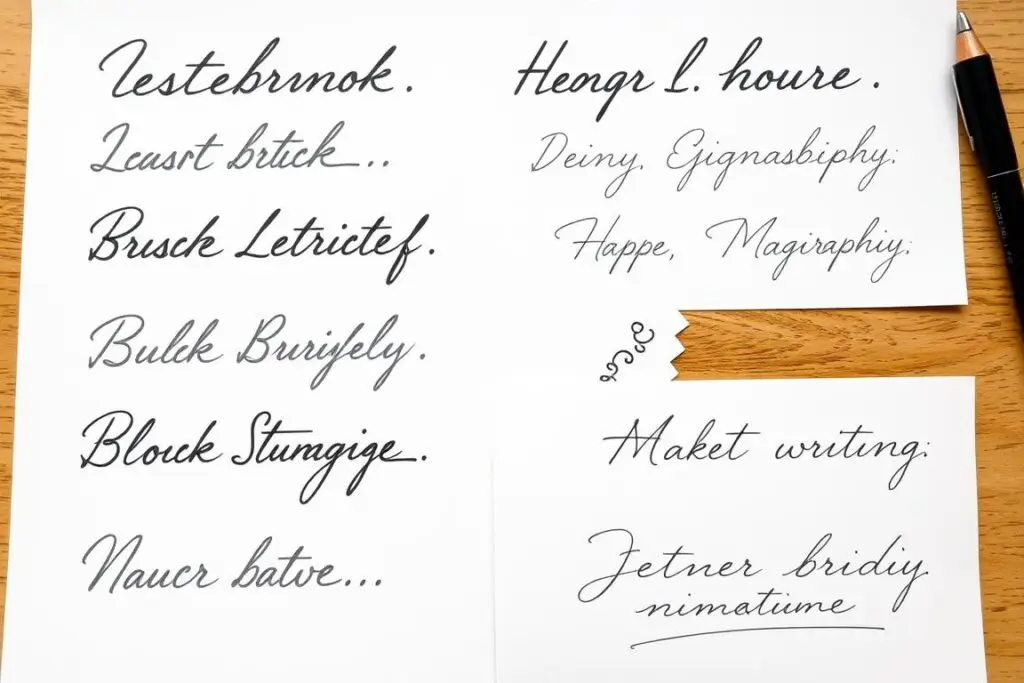 Testebrmok.
Lcasrt brtick..
Brusck Letrictef.
Bulck Buriyfely.
Blouck Stumgige.
Naucr batve...
Hengr L. houre.
Deiny, Gignasbiphy:
Happe, Magiraphiy:
Maket writing:
Jetner bridiy
nimatiume